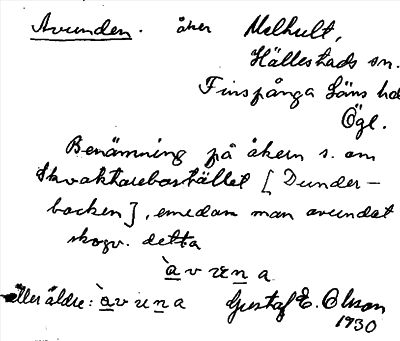 Avunden. åker Melhult,
Hällestads sn.
Finspånga läns hd
Ögl.
Benämning på åkern s. om
Skvaktarebostället [Dunder-
backen], emedan man avundat
skogv. detta
`a v ɯ n a
eller äldre: `a v u n a Gustaf E. Olsson
1930